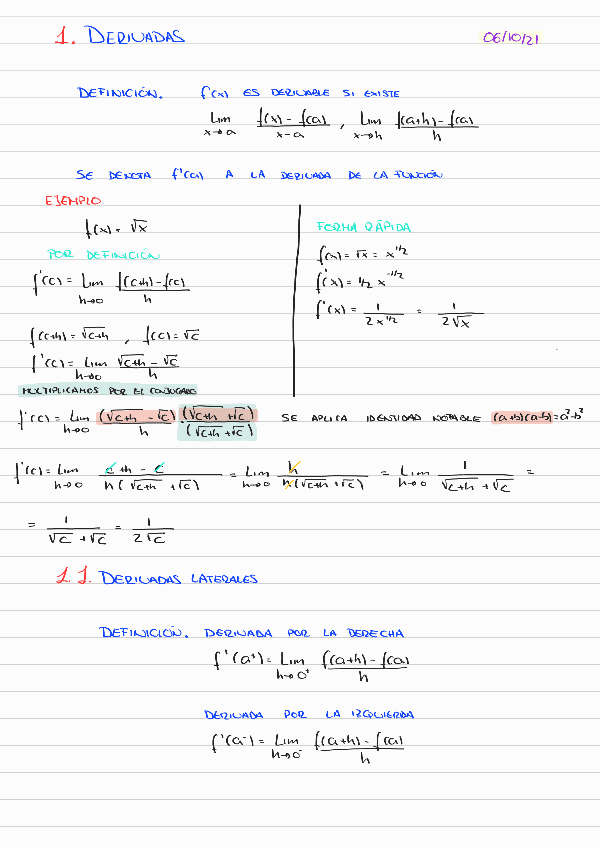 1. DERIVADAS 06/10/21
DEFINICIÓN. f(x) ES DERIVABLE SI EXISTE
Lim x→a (f(x) - f(a))/(x-a) , Lim x→h (f(a+h) - f(a))/h
SE DENOTA f'(a) A LA DERIVADA DE LA FUNCIÓN
EJEMPLO
f(x) = √x
POR DEFINICIÓN
f'(c) = Lim h→0 (f(c+h) - f(c))/h
f(c+h) = √c+h , f(c) = √c
f'(c) = Lim h→0 (√c+h - √c)/h
MULTIPLICAMOS POR EL CONJUGADO
FORMA RÁPIDA
f(x) = √x = x^1/2
f'(x) = 1/2 x^-1/2
f'(x) = 1/(2x^1/2) = 1/(2√x)
f'(c) = Lim h→0 (√c+h - √c)/h (√c+h + √c)/(√c+h + √c) SE APLICA IDENTIDAD NOTABLE (a+b)(a-b) = a²-b²
f'(c) = Lim h→0 (c+h - c)/(h(√c+h + √c)) = Lim h→0 h/(h(√c+h + √c)) = Lim h→0 1/(√c+h + √c) =
= 1/(√c + √c) = 1/(2√c)
1.1. DERIVADAS LATERALES
DEFINICIÓN. DERIVADA POR LA DERECHA
f'(a⁺) = Lim h→0⁺ (f(a+h) - f(a))/h
DERIVADA POR LA IZQUIERDA
f'(a⁻) = Lim h→0⁻ (f(a+h) - f(a))/h